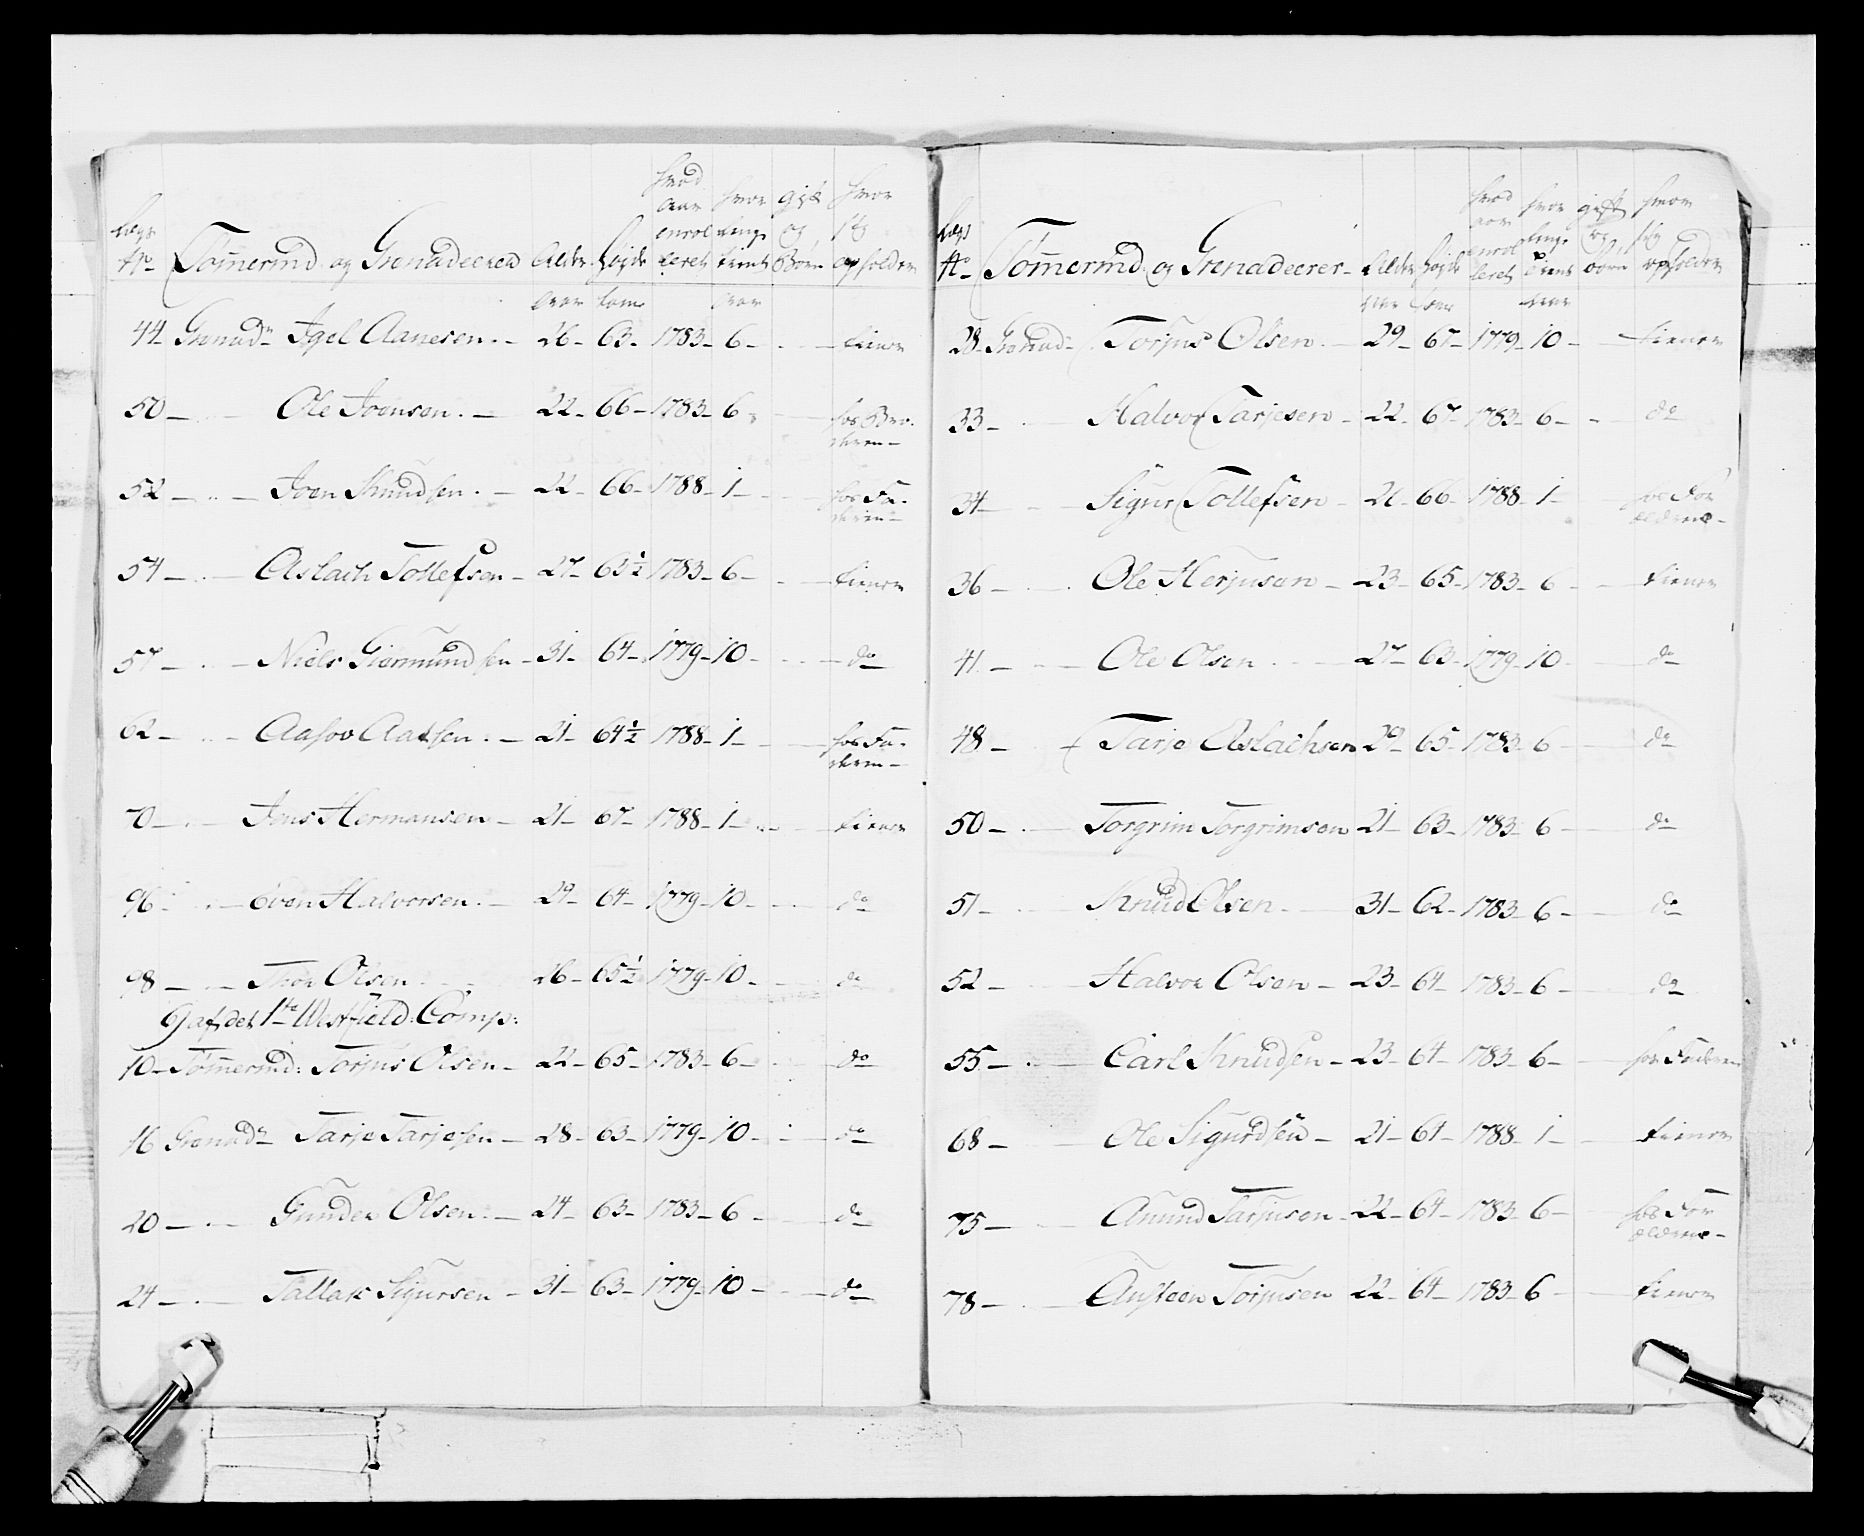 Lægs No Tømermd og Grenadeerer Alder Høyde hvad Aar enrolleret hvor lenge tient gift og Børn hvor sig opholder
Aar tom Aar
44 Grenadr Igel Aanesen 26 63 1783 6 tiener
50 Ole Joensen 22 66 1783 6 hos Broderen
52 Joen Knudsen 22 66 1788 1 hos Faderen
54 Aslach Tollefsen 27 63½ 1783 6 tiener
57 Niels Giermundsen 31 64 1779 10 do
62 Aasov Aadsen 21 64½ 1788 1 hos Faderen
70 Jens Hermansen 21 67 1788 1 tiener
96 Even Halvorsen 29 64 1779 10 do
98 Thor Olsen 26 65½ 1779 10 do
9 af det 1ste Westfield: Comp:
10 Tømermd: Torjus Olsen 22 65 1783 6 do
16 Grenadr Tarje Tarjesen 28 63 1779 10 do
20 Gunder Olsen 24 63 1783 6 do
24 Tallak Sigursen 31 63 1779 10 do
Lægs No Tømermd og Grenadeerer Alder Høyde hvad aar enrolleret hvor lenge tient gift og børn hvor sig opholder
28 Grenadr Torjus Olsen 29 67 1779 10 tiener
33 Halvor Tarjesen 22 67 1783 6 do
34 Sigur Tollefsen 22 66 1788 1 hos Forældrene
36 Ole Herjusen 23 65 1783 6 tiener
41 Ole Olsen 27 63 1779 10 do
48 Tarje Aslachsen 29 65 1783 6 do
50 Torgrim Torgrimsen 21 63 1783 6 do
51 Knud Olsen 31 62 1783 6 do
52 Halvor Olsen 23 64 1783 6 do
55 Carl Knudsen 23 64 1783 6 hos Faderen
68 Ole Sigurdsen 21 64 1788 1 tiener
75 Anund Tarjusen 22 64 1783 6 hos Forældrene
78 Austeen Torjusen 22 64 1783 6 tiener